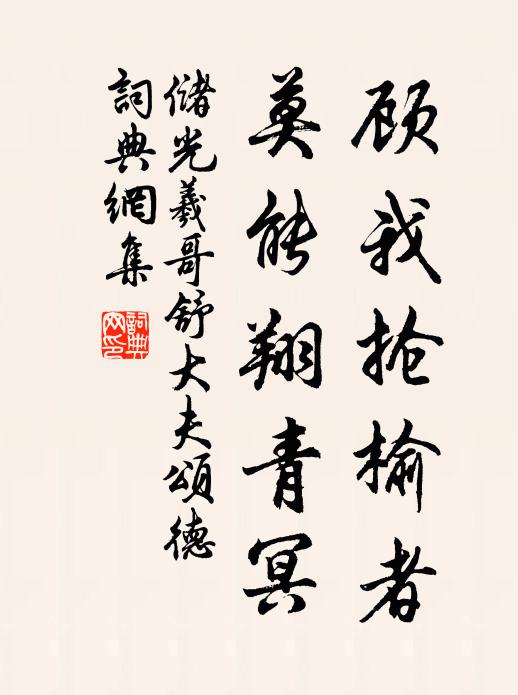 顾我抢榆者
莫能翔青冥
储光羲哥舒大夫頌德
詞典網集
詞典网印